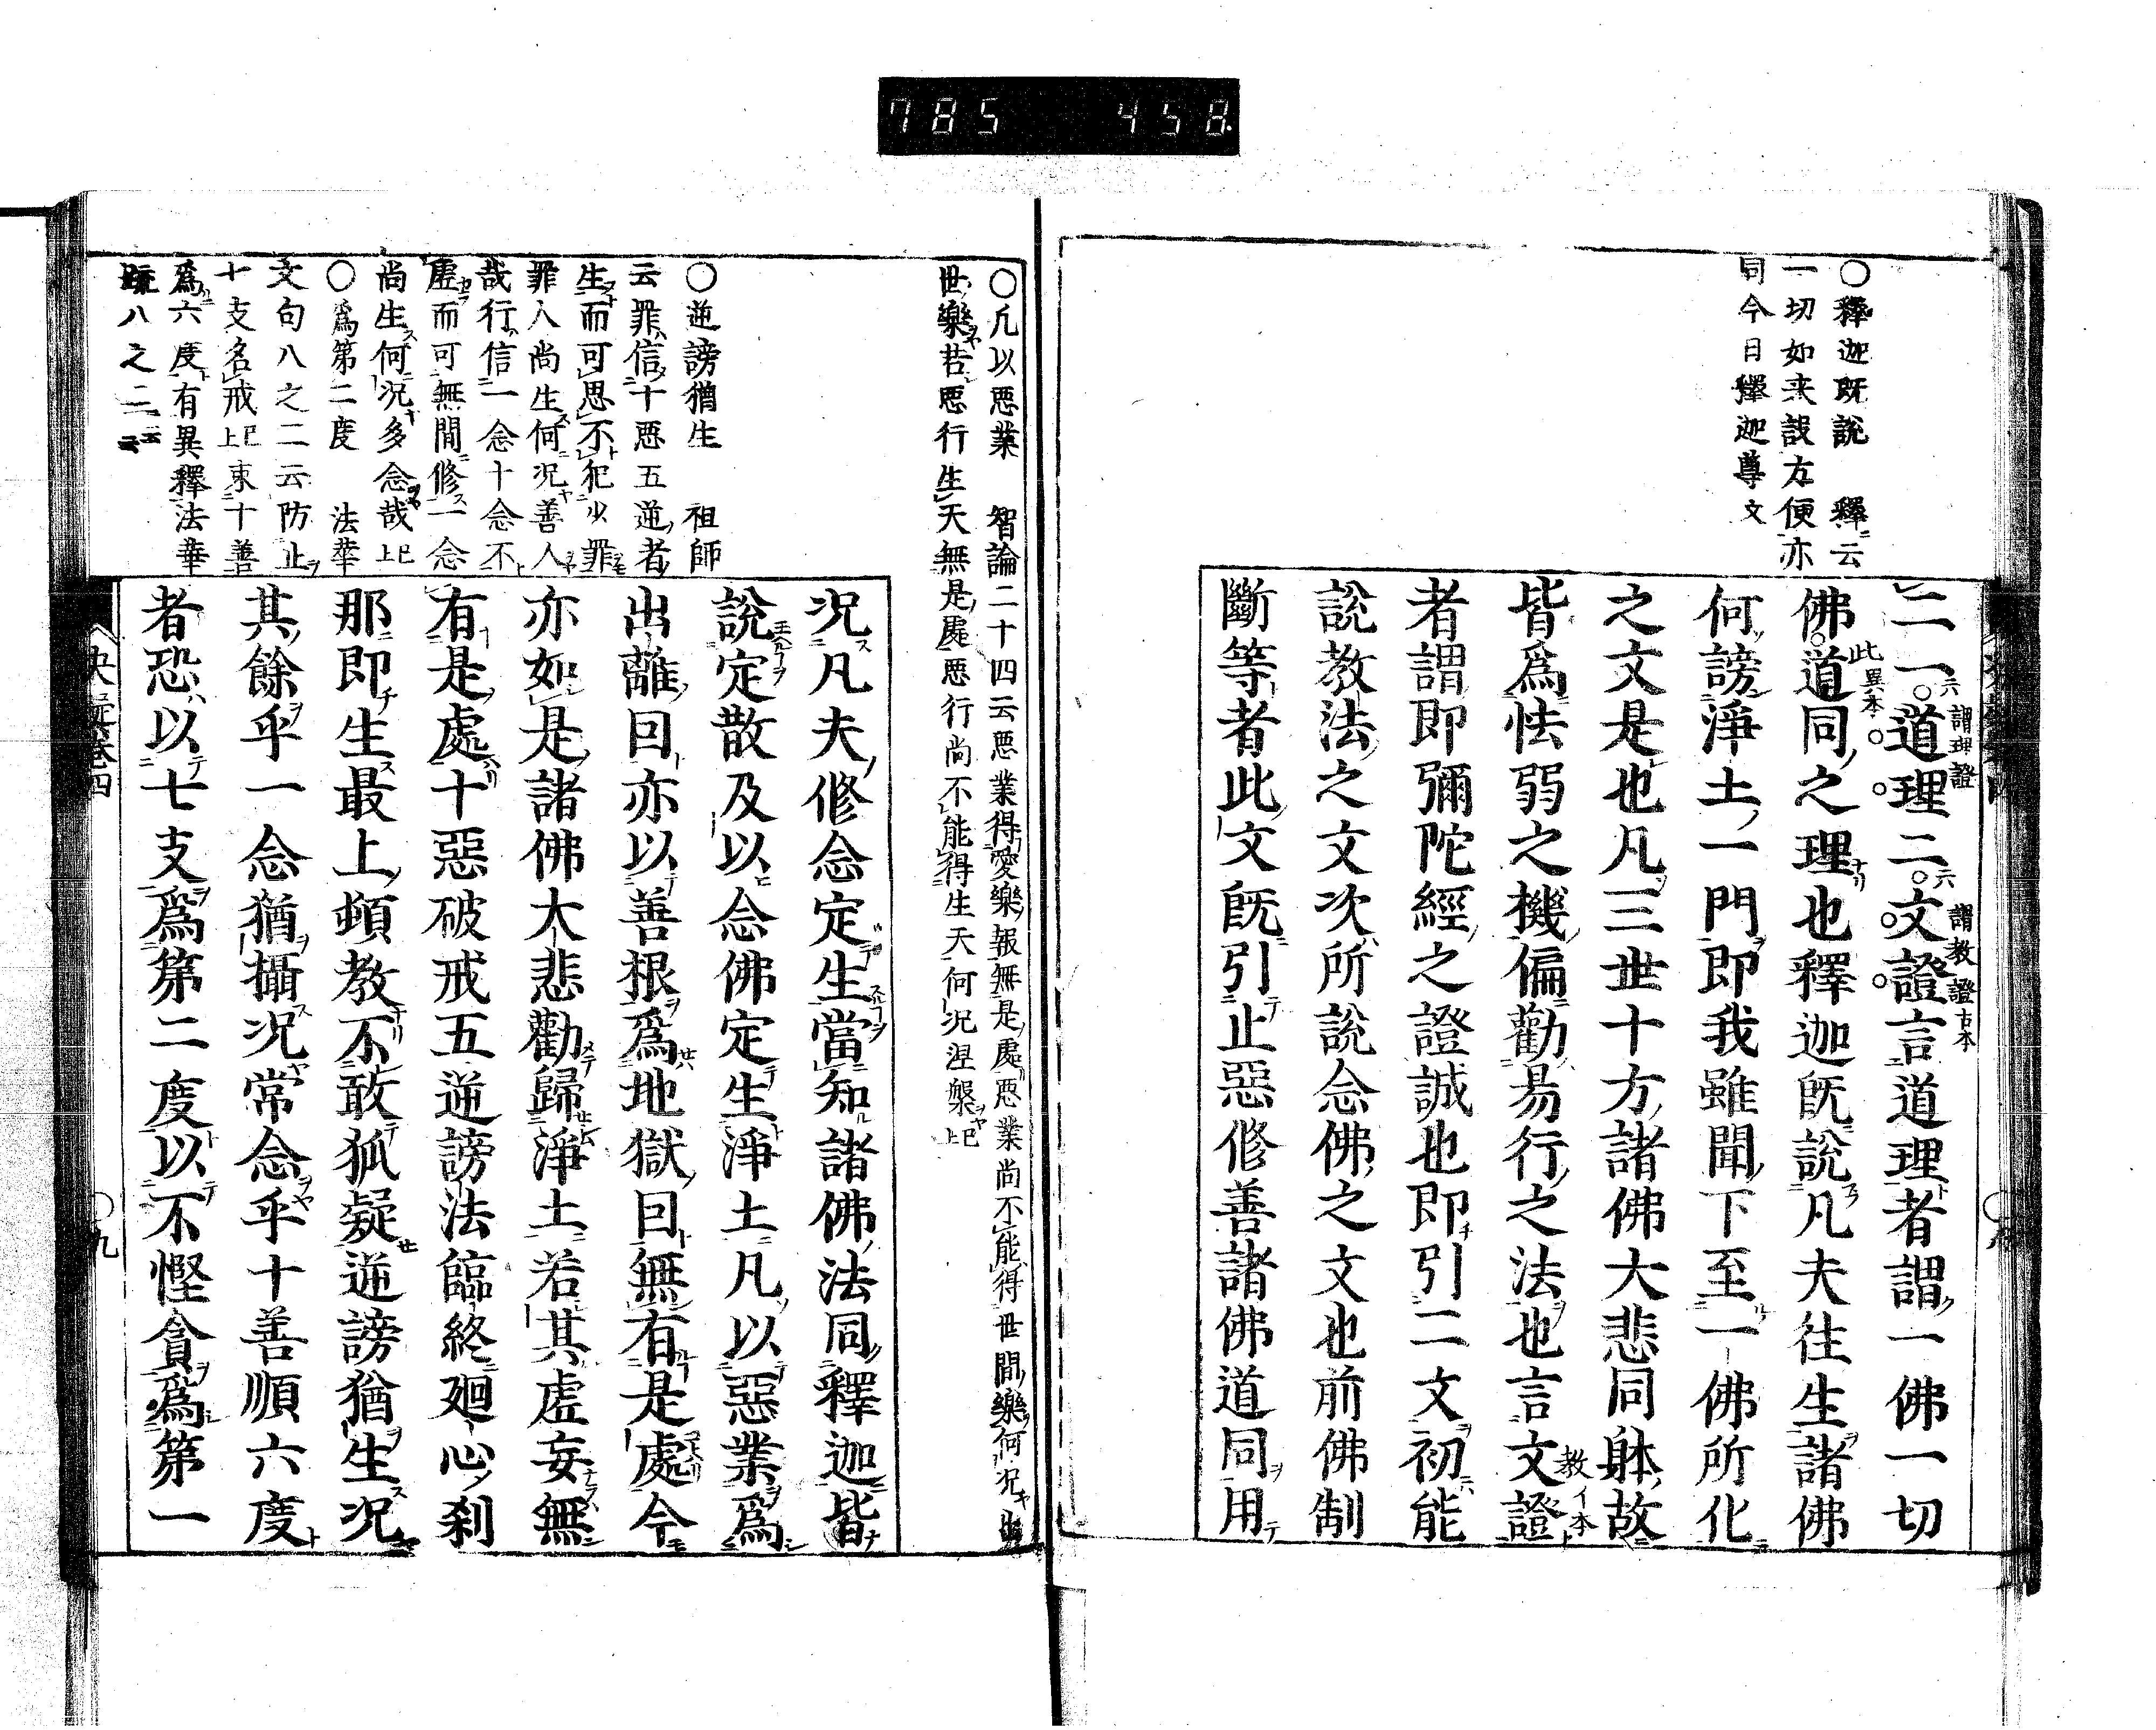 785 458
○釋迦既說 釋云
一切如来設方便亦
同今日釋迦尊文
二一道理二文證言道理者謂一佛一切
六 謂理證
六 謂教證古本
佛道同之理也釋迦既說凡夫往生諸佛
此異本
何謗淨土一門即我雖聞下至一佛所化
之文是也凡三世十方諸佛大悲同躰故
皆爲怯弱之機偏勸易行之法也言文證
教イ本
者謂即彌陀經之證誠也即引二文初能
說教法之文次所說念佛之文也前佛制
斷等者此文既引止惡修善諸佛道同用
○凢以悪業 智論二十四云悪業得愛樂報無是處悪業尚不能得世間樂何况出
世樂若悪行生天無是處悪行尚不能得生天何况涅槃已上
○逆謗猶生 祖師
云罪信十悪五逆者
生而可思不犯少罪
罪人尚生何况善人
哉行信一念十念不
虚而可無間修一念
尚生何况多念哉已上
○爲第二度 法華
文句八之二云防止
十支名戒已上束十善
爲六度有異釋法華
疏八之二云云
况凡夫修念定生當知諸佛法同釋迦皆
說定散及以念佛定生淨土凡以惡業爲
出離因亦以善根爲地獄因無有是處今
亦如是諸佛大悲勸歸淨土若其虚妄無
有是處十惡破戒五逆謗法臨終廻心刹
那即生最上頓教不敢狐疑逆謗猶生况
其餘乎一念猶攝况常念乎十善順六度
者恐以七支爲第二度以不慳貪爲第一
決疑卷四 ○九